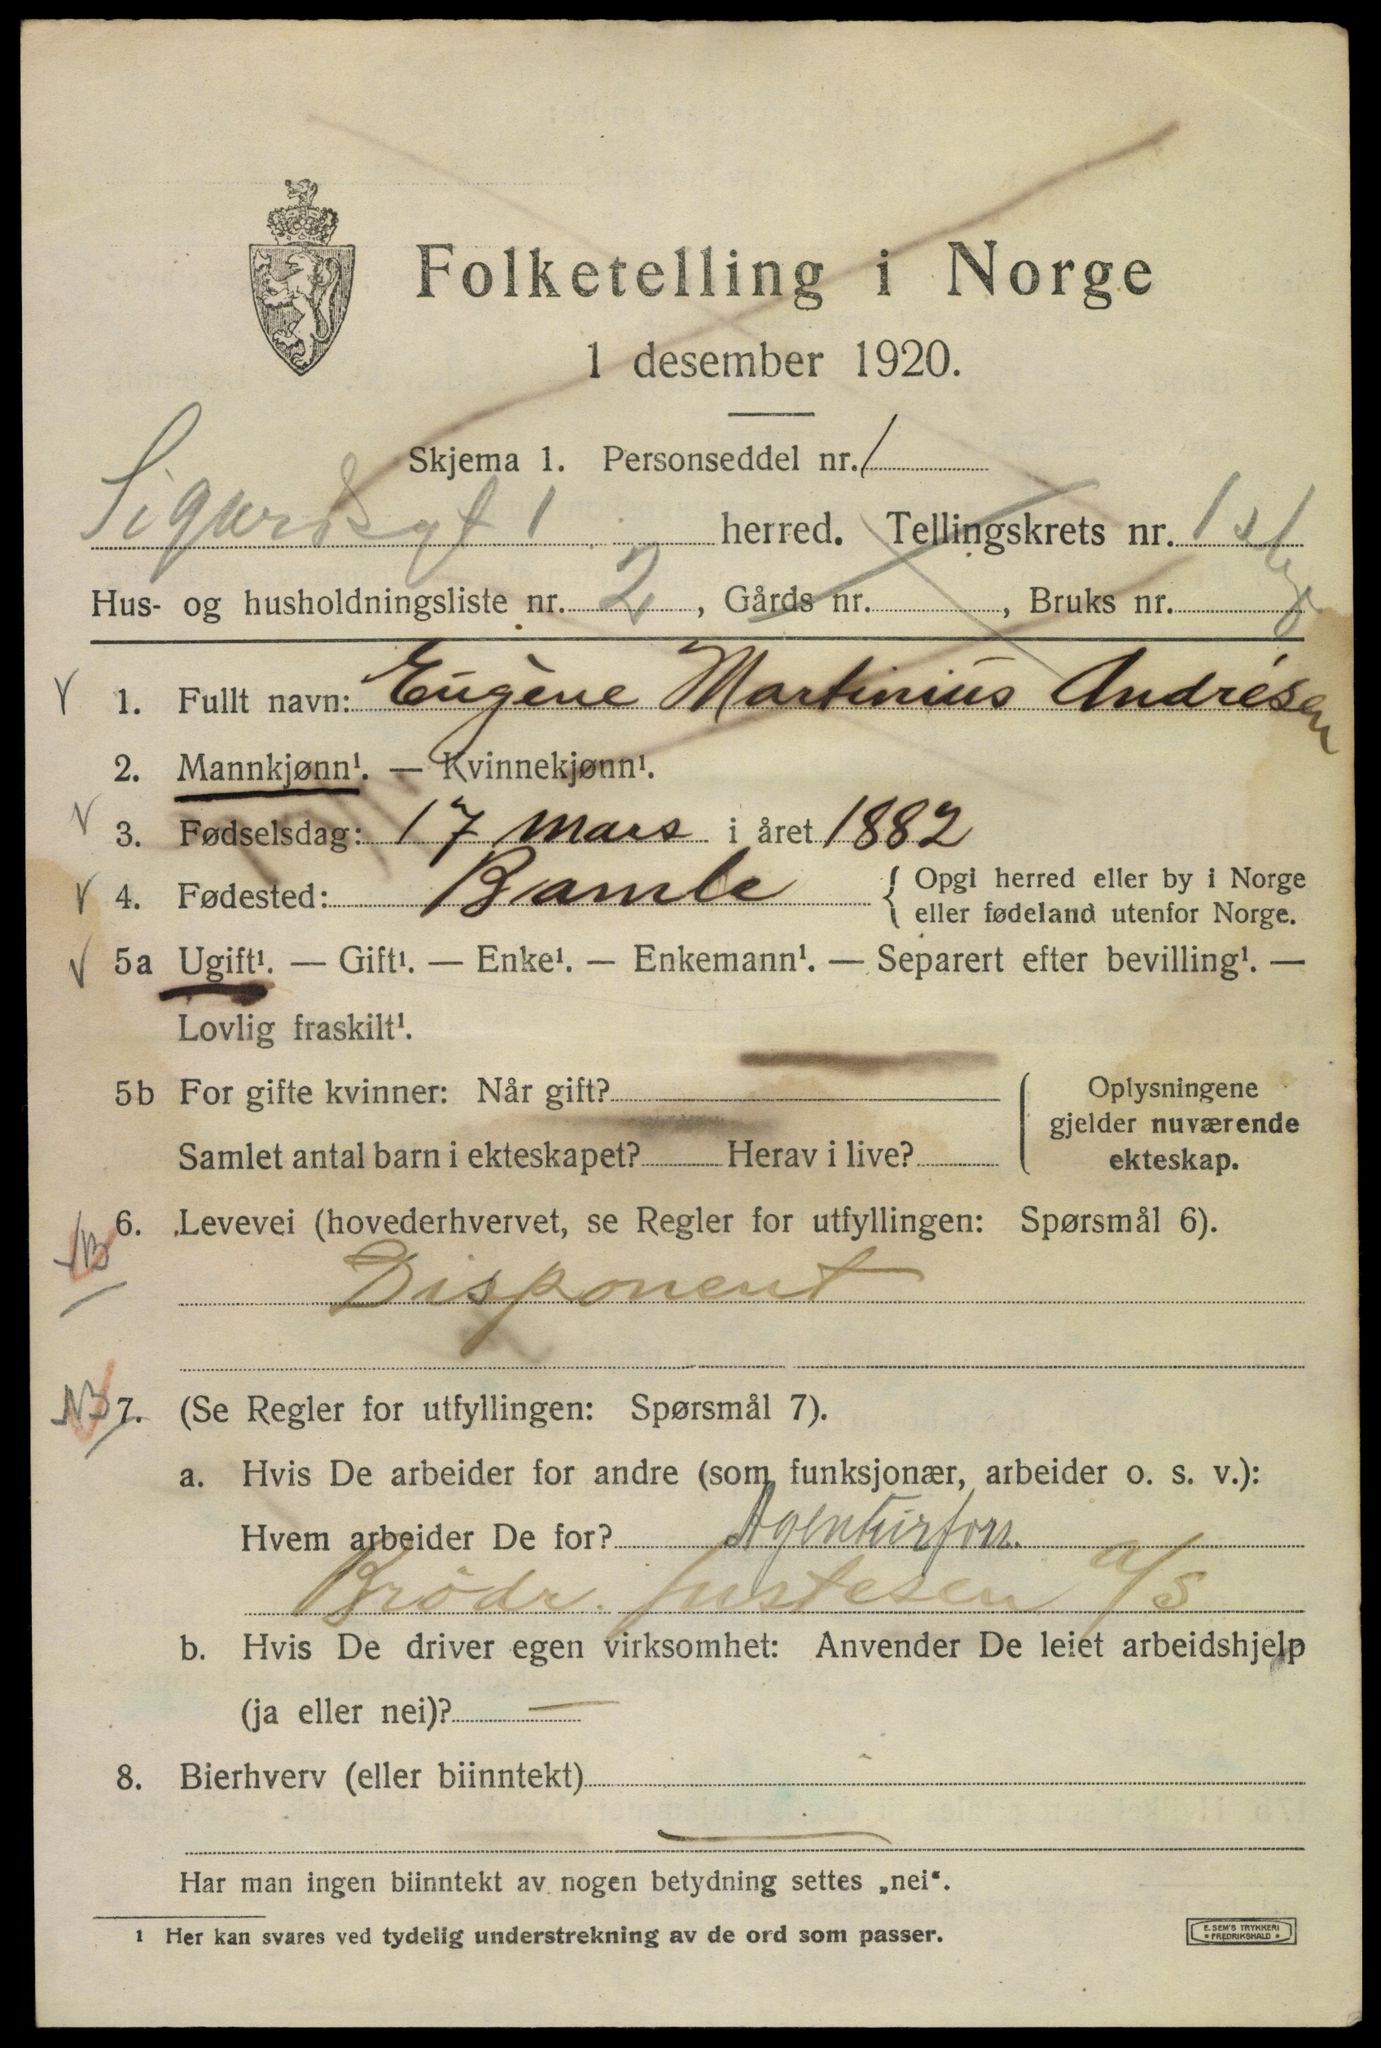 Folketelling i Norge
1 desember 1920.
Skjema 1. Personseddel nr. 1
Sigurdsgt 1 herred. Tellingskrets nr. 1 stg
Hus- og husholdningsliste nr. 2, Gårds nr. , Bruks nr.
1. Fullt navn: Eugène Martinius Andrésen
2. Mannkjønn¹. — Kvinnekjønn¹.
3. Fødselsdag: 17 mars i året 1882
4. Fødested: Bamle { Opgi herred eller by i Norge
eller fødeland utenfor Norge.
5a Ugift¹. — Gift¹. — Enke¹. — Enkemann¹. — Separert efter bevilling¹. —
Lovlig fraskilt¹.
5b For gifte kvinner: Når gift?
Samlet antal barn i ekteskapet? Herav i live?
Oplysningene
gjelder nuværende
ekteskap.
NB 6. Levevei (hovederhvervet, se Regler for utfyllingen: Spørsmål 6).
Disponent
NB 7. (Se Regler for utfyllingen: Spørsmål 7).
a. Hvis De arbeider for andre (som funksjonær, arbeider o. s. v.):
Hvem arbeider De for? Agenturforr.
Brödr. Justesen a/s
b. Hvis De driver egen virksomhet: Anvender De leiet arbeidshjelp
(ja eller nei)? —
8. Bierhverv (eller biinntekt)
—
Har man ingen biinntekt av nogen betydning settes „nei“.
¹ Her kan svares ved tydelig understrekning av de ord som passer.
E. SEM'S TRYKKERI
FREDRIKSHALD